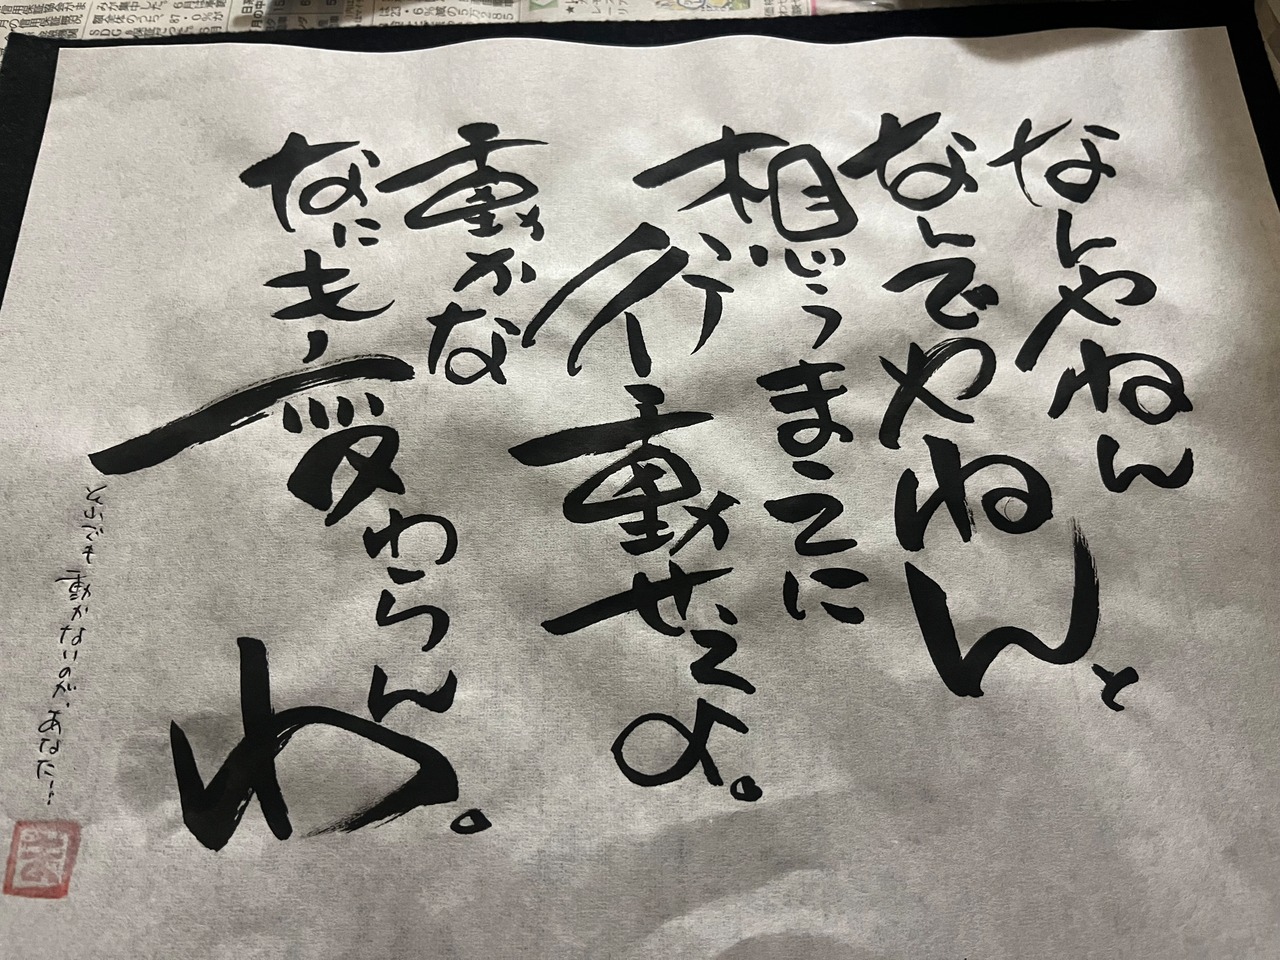 なんやねん
なんでやねんと
想うまえに
行動せえよ。
動かな
なにも変わらんわ。
動かないのが、あなた…